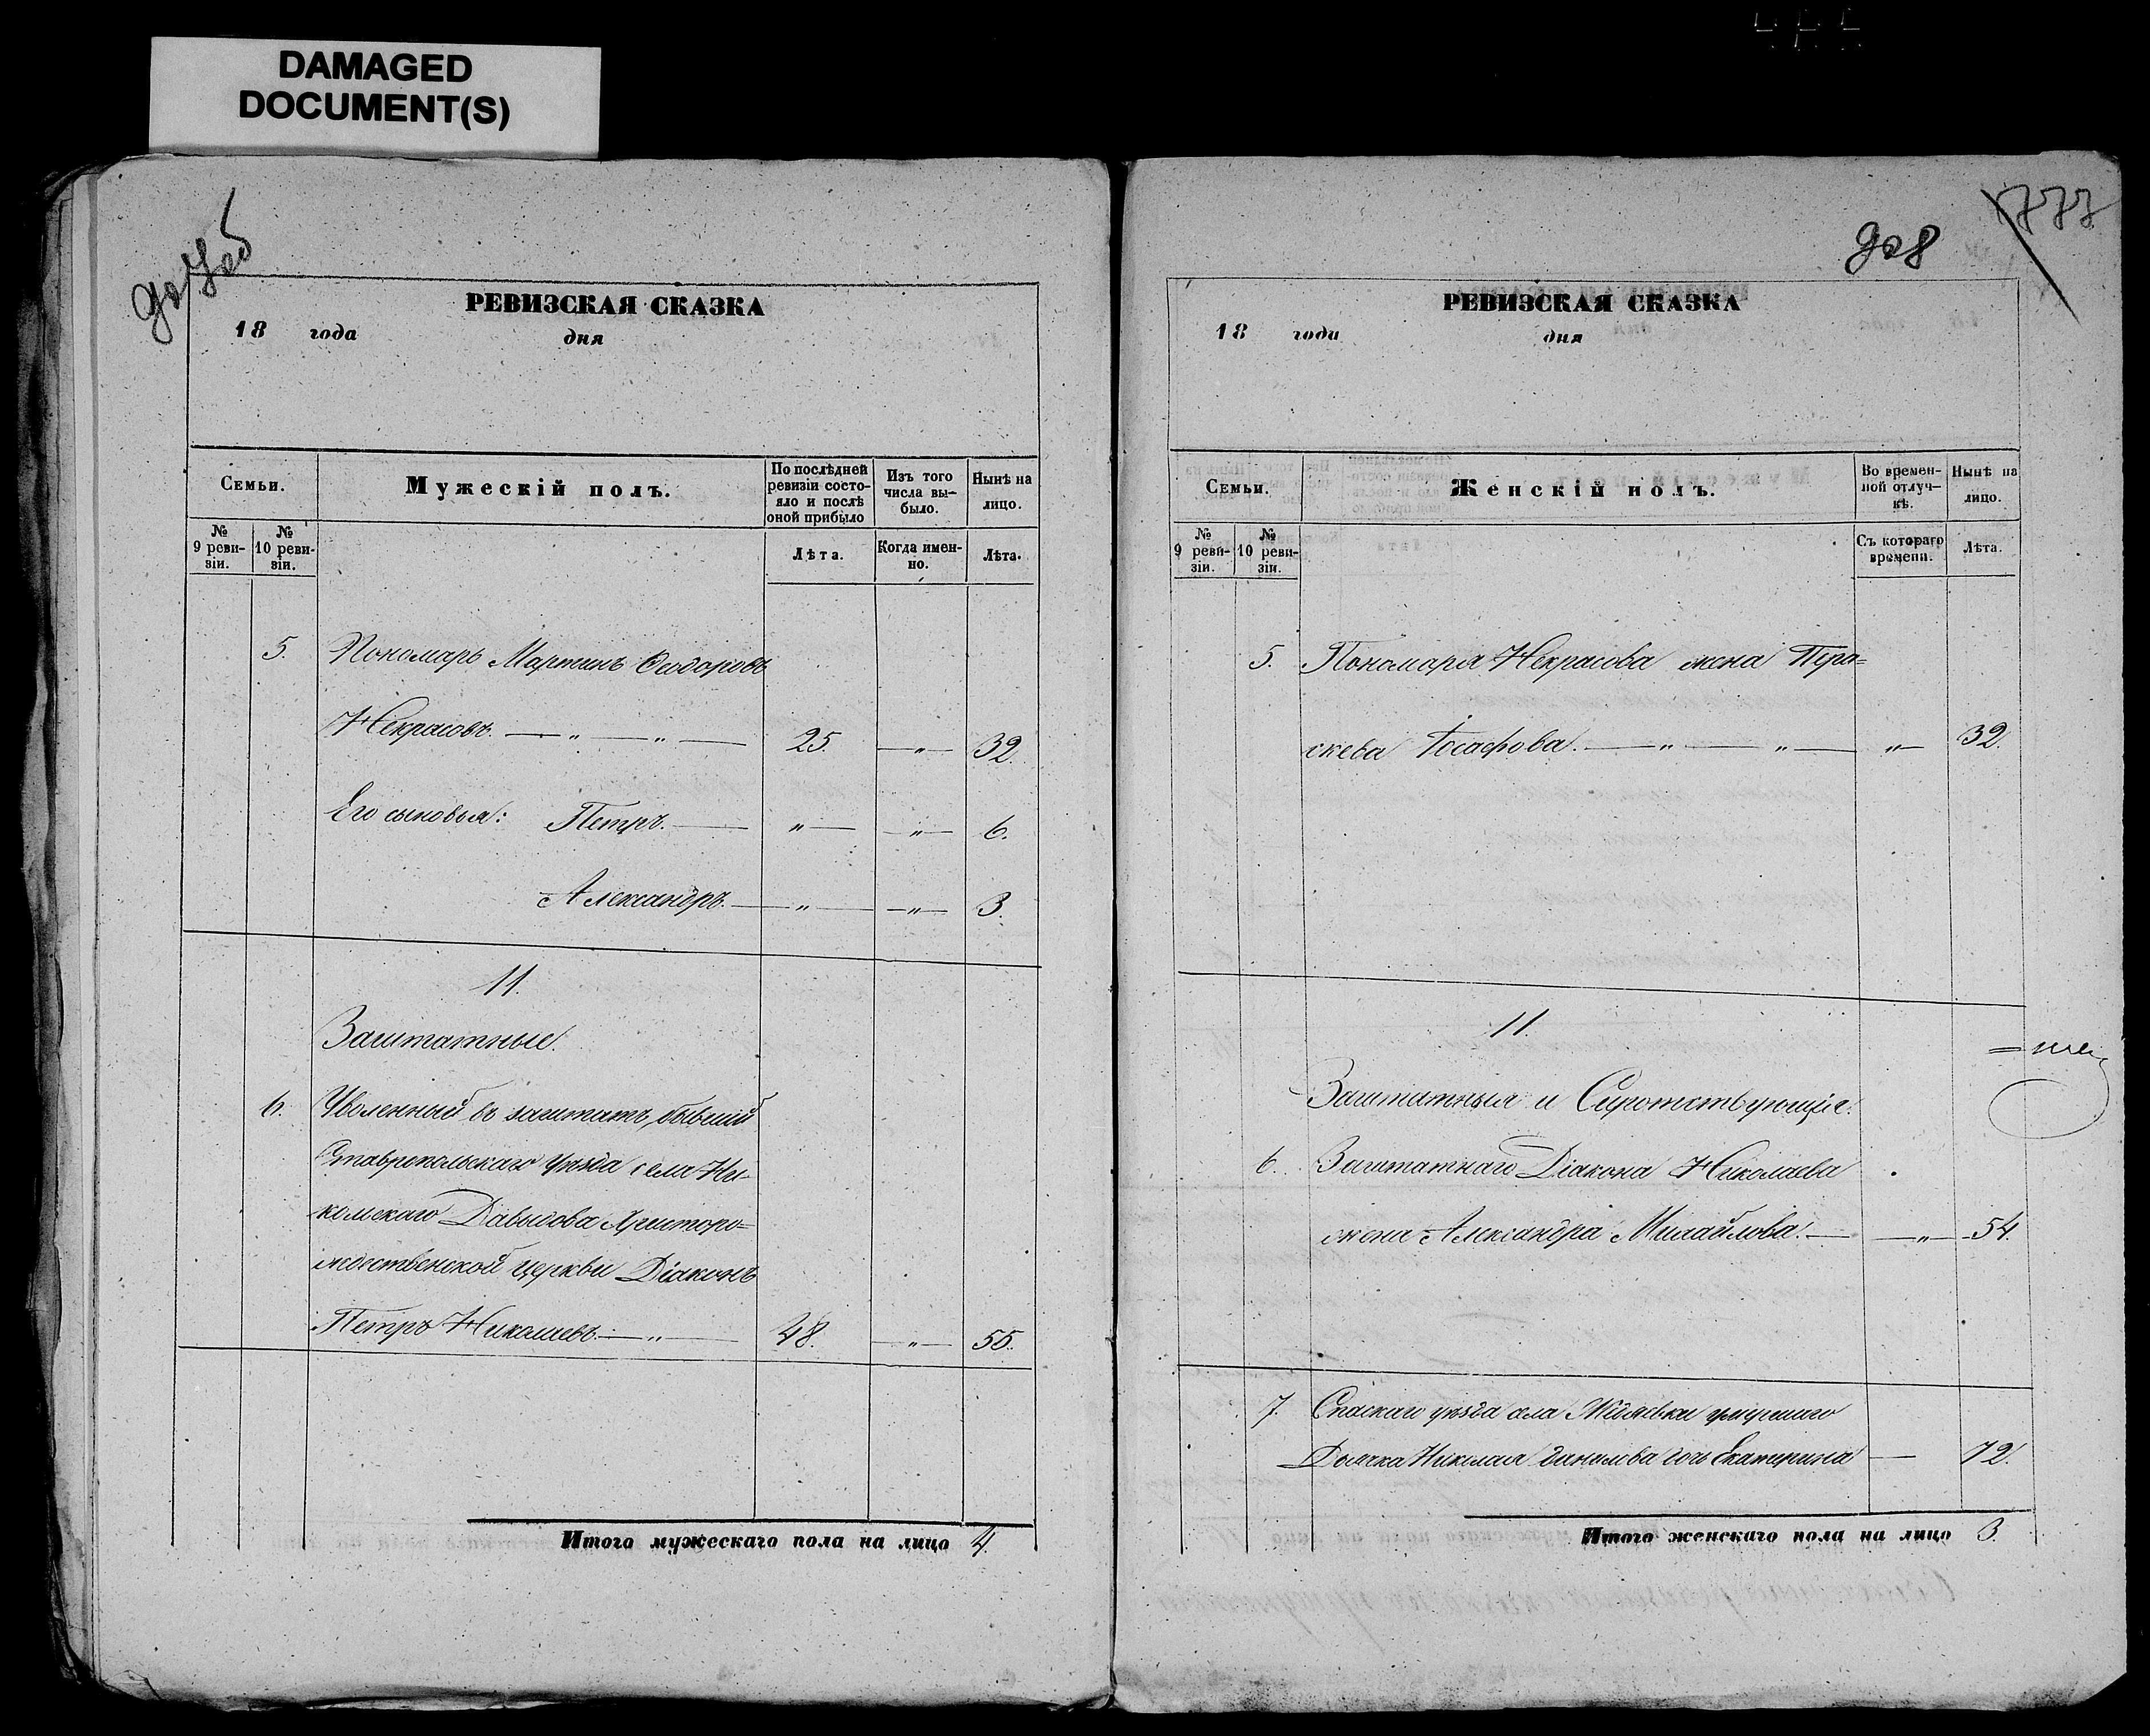 DAMAGED
DOCUMENT(S)
РЕВИЗСКАЯ СКАЗКА
18 года дня
Семьи.
Мужескій полъ.
По послѣдней ревизіи состояло и послѣ оной прибыло
Изъ того числа выбыло.
Нынѣ на лицо.
№ 9 ревизіи.
№ 10 ревизіи.
Лѣта.
Когда именно.
Лѣта.
5. Пономарь Мартинъ Ѳеодоровъ
Некрасовъ. — „ — „ — 25. — „ — 32.
Его сыновья: Петръ. — „ — „ — 6.
Александръ. — „ — „ — 3.
11.
Заштатные.
6. Уволенный въ заштатъ, бывший
Ставропольскаго уѣзда села Ни-
кольскаго Давыдова Христоро=
ждественской церкви Діаконъ
Петръ Николаевъ. — „ — 48. — „ — 55.
Итого мужескаго пола на лицо 4.
908
777
РЕВИЗСКАЯ СКАЗКА
18 года дня
Семьи.
Женскій полъ.
Во временной отлучкѣ.
Нынѣ на лицо.
№ 9 ревизіи.
№ 10 ревизіи.
Съ котораго времени.
Лѣта.
5. Пономаря Некрасова жена Пра=
скева Іосафова. — „ — „ — „ — 32.
11.
Заштатныя и Сиротствующія.
6. Заштатнаго Діакона Николаева
жена Александра Михайлова. — „ — 54.
7. Спаскаго уѣзда села умершаго
Дьячка Николая Данилова дочь Екатерина — 72.
Итого женскаго пола на лицо 3.